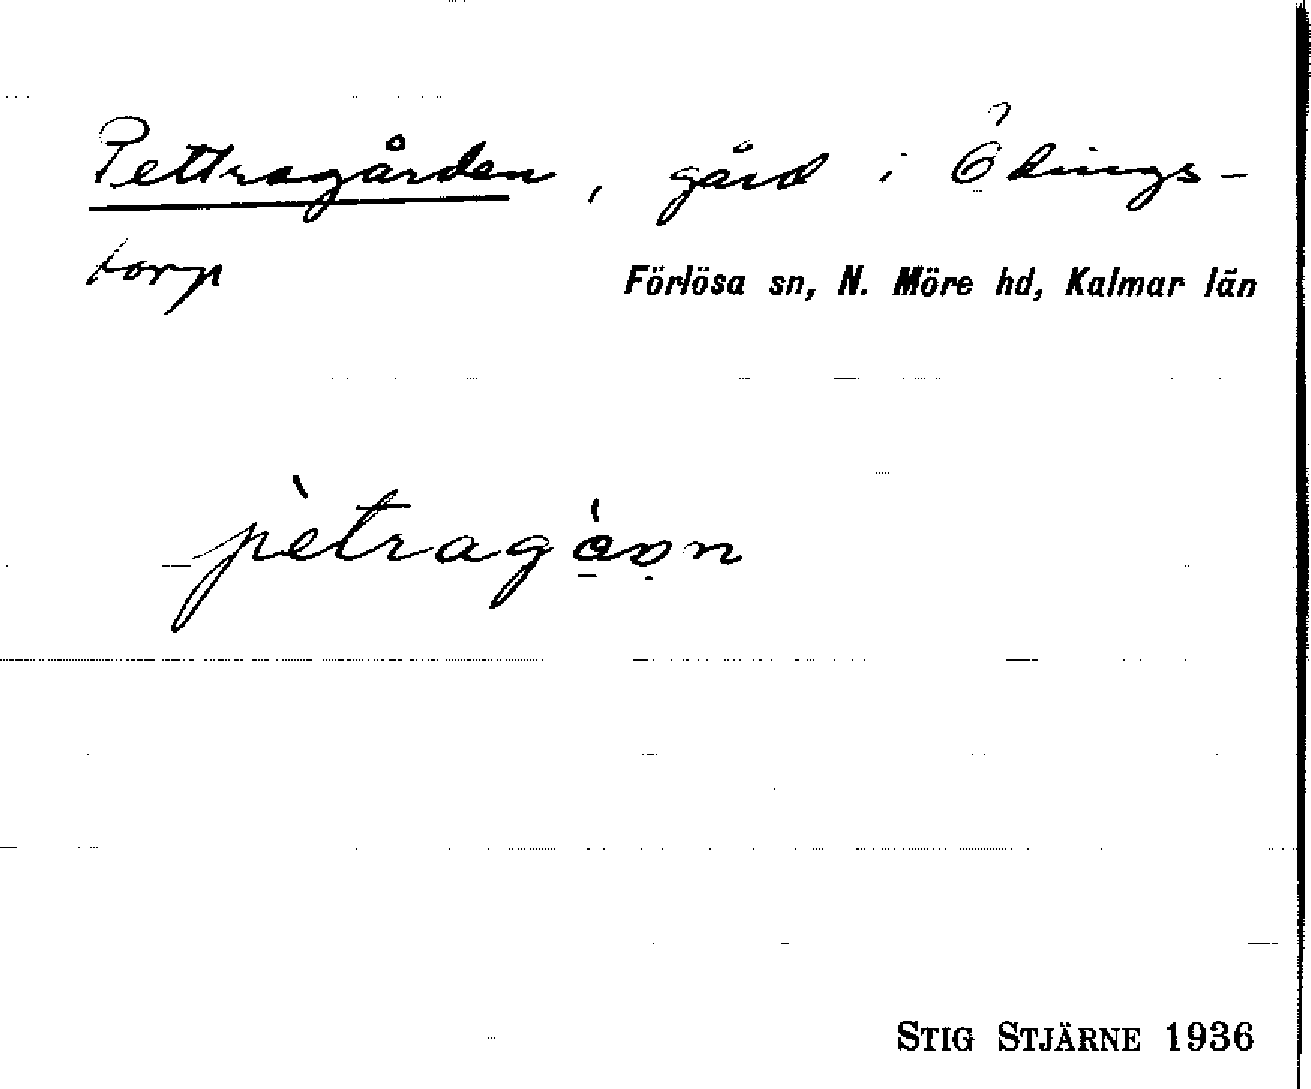 Pettragården, gård i Ölvings-
torp
Förlösa sn, N. Möre hd, Kalmar län
STIG STJÄRNE 1936